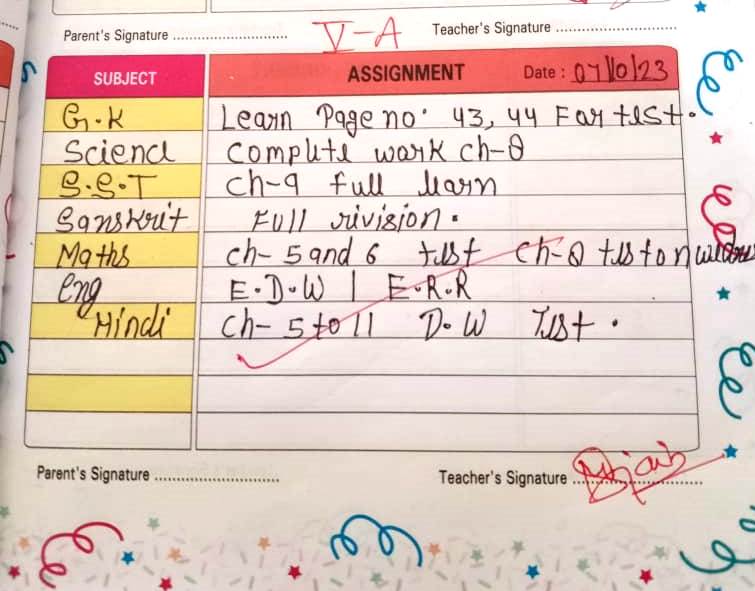 Parent's Signature ........................... Teacher's Signature ...........................
V-A
SUBJECT ASSIGNMENT Date : 07/10/23
G.K Learn Page no. 43, 44 For test.
Sciencl Complete work ch-8
S.S.T Ch-9 full learn
Sanskrit Full rivision.
Maths Ch- 5 and 6 test Ch-8 test on
Eng E.D.W | E.R.R
Hindi Ch- 5 to 11 D.W Test.
Parent's Signature ........................... Teacher's Signature ...........................